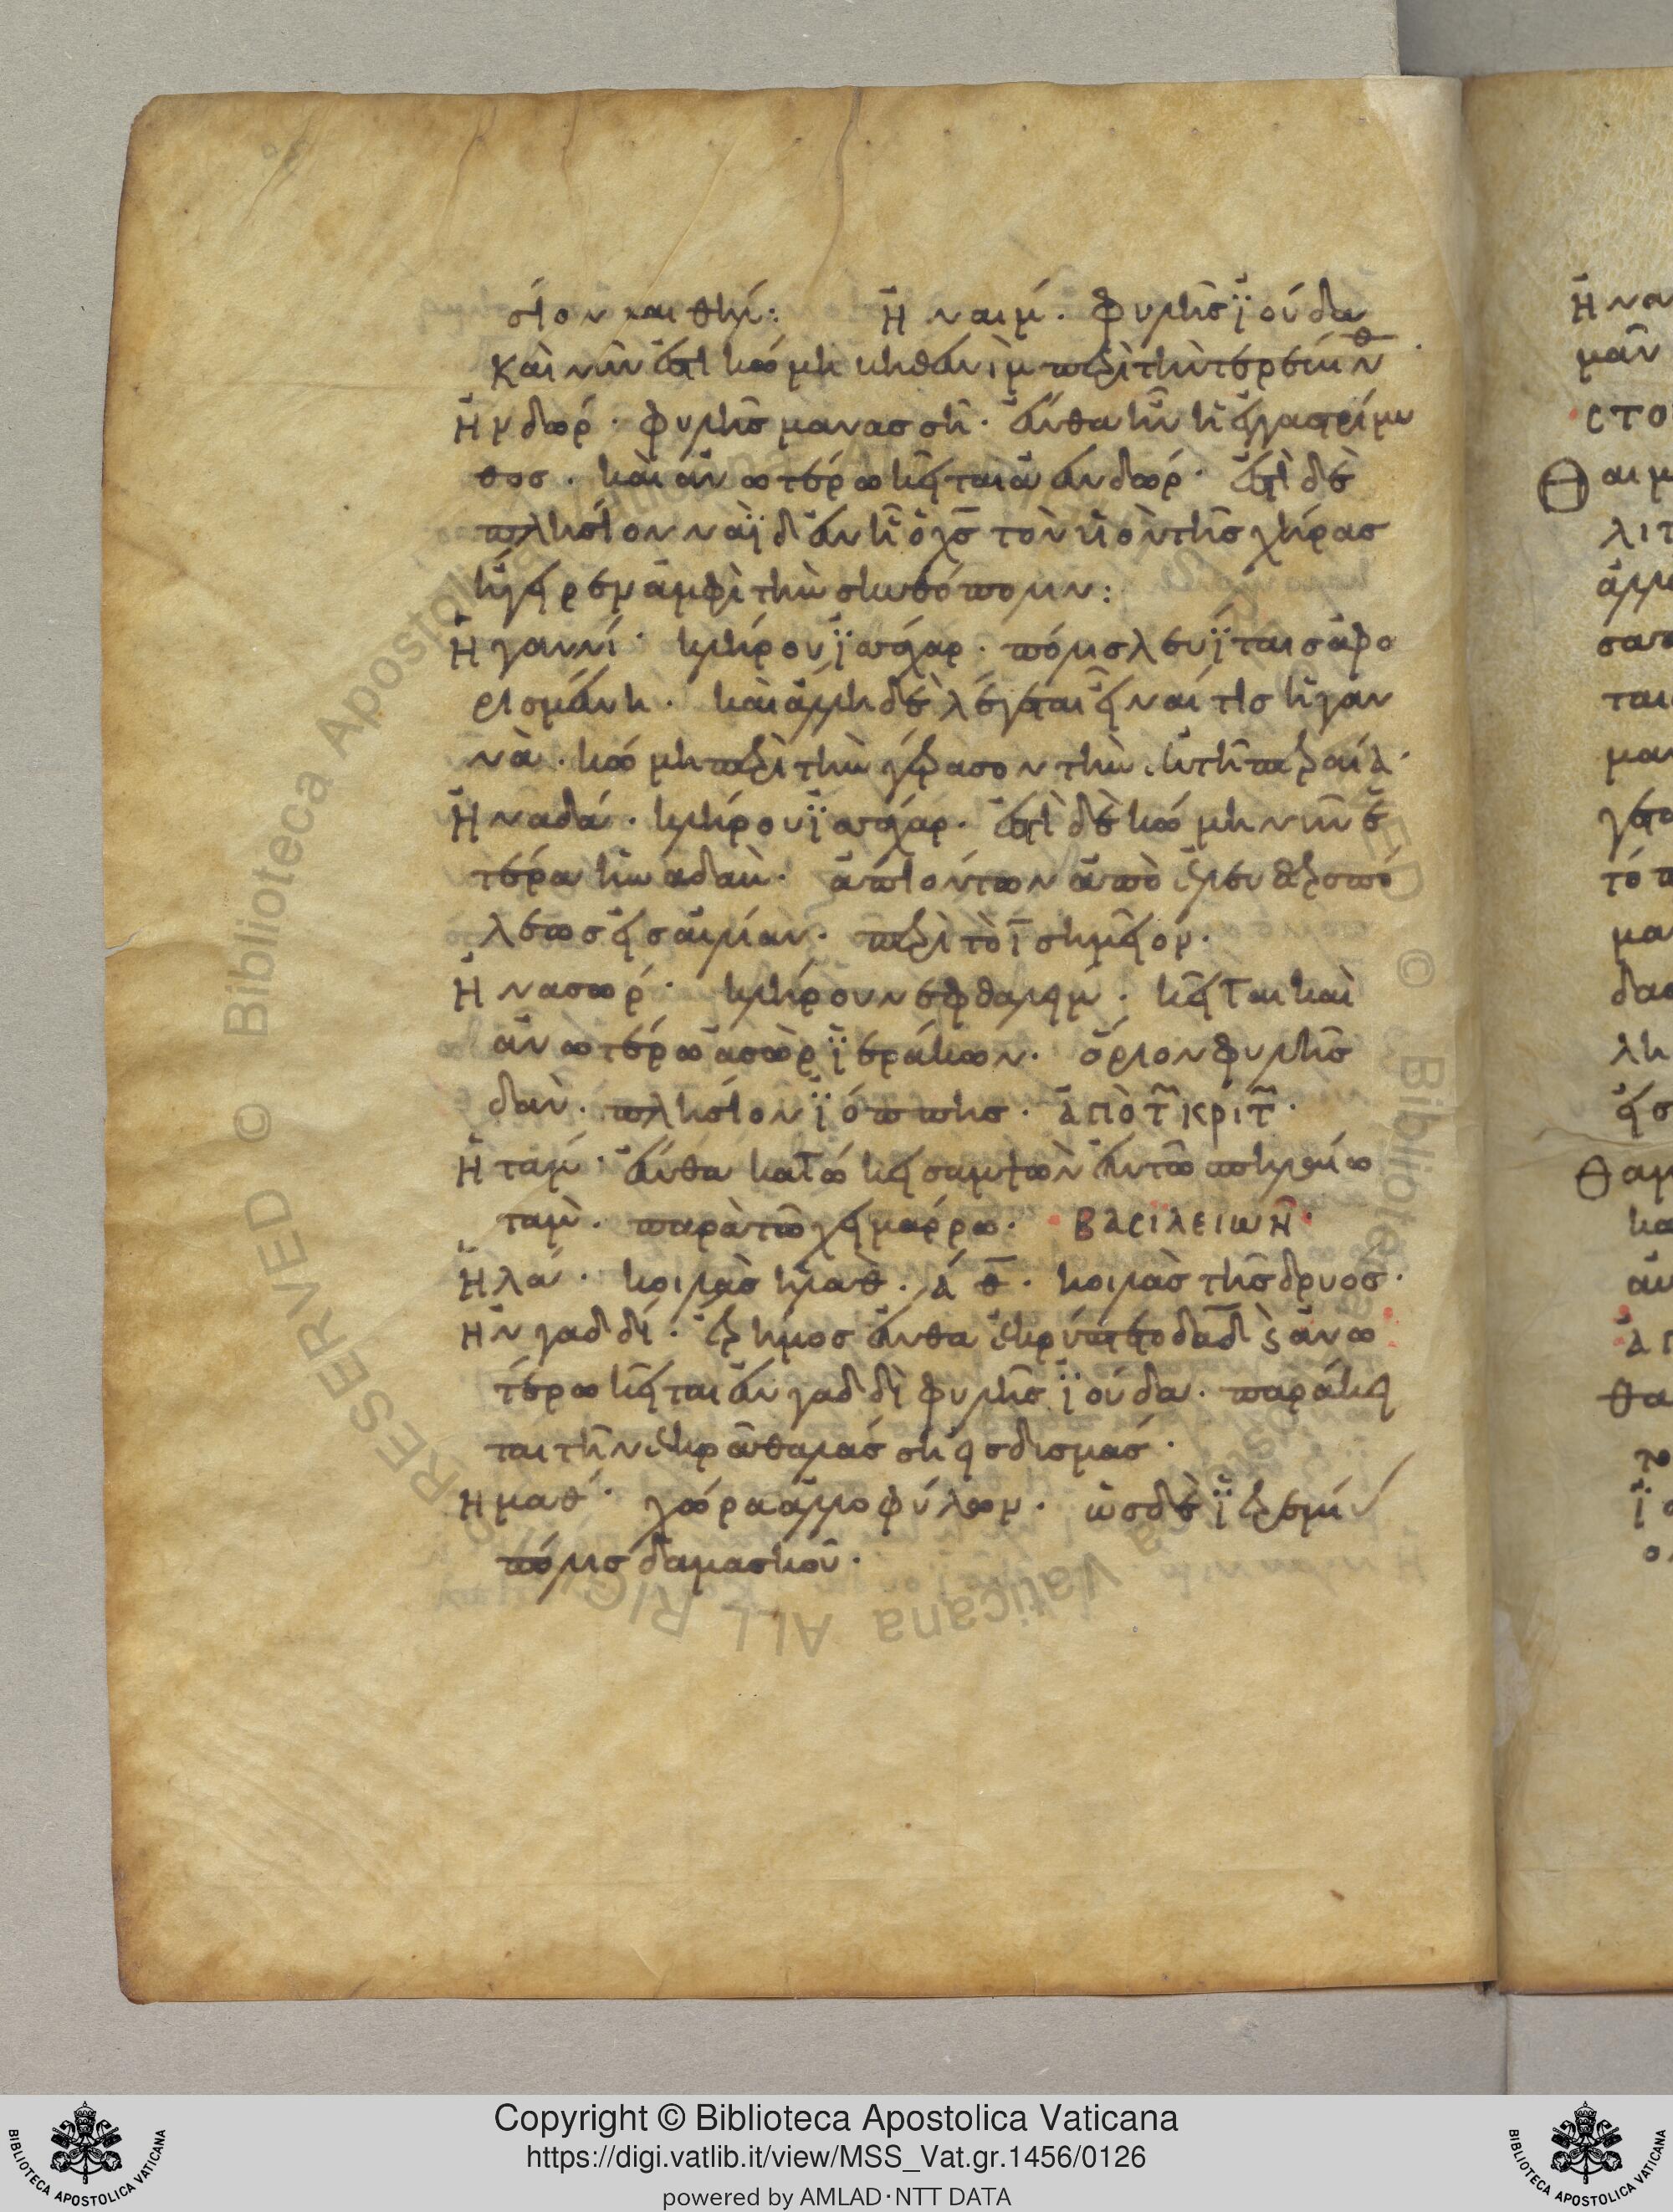 σίον καιθήλ: Ἠναείμ. φυλῆς ἰούδα
καὶ νῦν ἐστὶ κώμη βηθενὶμ περὶ τὴν τερεβιν̅θ̅.
Ἠνδώρ. φυλῆς μανασσῆ. ἔνθα ἦν ἡ ἐγγαστρίμυ
θος. καὶ ἀνωτέρω κεῖται ἀενδώρ. ἐστὶ δὲ
πλησίον ναῒν ἐν ἧ ὁ χς τὸν υἱὸν τῆς χήρας
ἤγειρεν ἀμφὶ τὴν σκυθόπολιν:
Ἠγαννί. κλήρου ἰσάχαρ. πόλις λευΐταις ἀφο
ρισμένη. καὶ ἄλλη δὲ λέγεται εἶναί τις ἠγαν
νὰ. κώμη περὶ τὴν γέρασον τὴν ἐν τῇ περαία.
Ἠναδά. κλήρου ἰσάχαρ. ἐστὶ δὲ κώμη νῦν ἑ
τέρα ἠναδαὺ. ἀπιόντων ἀπὸ ἐλευθεροπό
λεως εἰς αἰλίαν. περὶ τὸ ι̅ σημεῖον.
Ἠνασώρ. κλήρου νεφθαλείμ. κεῖται καὶ
ἀνωτέρω ἀσὼρ ἱεράκων. ὅριον φυλῆς
δαν. πλησίον ἰόππης. ἀπὸ τ̅ κριτ̅.
Ἠτάμ. ἔνθα κατώκει σαμψὼν ἐν τῷ σπηλαίω
ταμ. παρὰ τῷ χειμάρρω. βασιλειων.
Ἠλα. κοιλὰς ἠλαθ. ἀ θ̅. κοιλὰς τῆς δρυος.
Ἠνγαδδί. ἔρημος ἔνθα ἐκρύπτετο δα̅δ ϛ ἀνω
τέρω κεῖται ἐνγαδδὶ φυλῆς ἰούδα. παράκει
ται τῇ νεκρᾷ θαλάσσῃ εἰς δυσμάς.
Ἠμαθ. χώρα ἀλλοφύλων. ὡς δὲ ἱερεμί
πόλις δαμασκοῦ.
Ἠνα
μᾶν
στο
Θαιμ
λιτ
ται
μαν
τόπ
μα
δα
λη
εἰς
Θαμ
κα
ἀπ
θα
Copyright © Biblioteca Apostolica Vaticana
https://digi.vatlib.it/view/MSS_Vat.gr.1456/0126
powered by AMLAD·NTT DATA
BIBLIOTECA APOSTOLICA VATICANA
BIBLIOTECA APOSTOLICA VATICANA